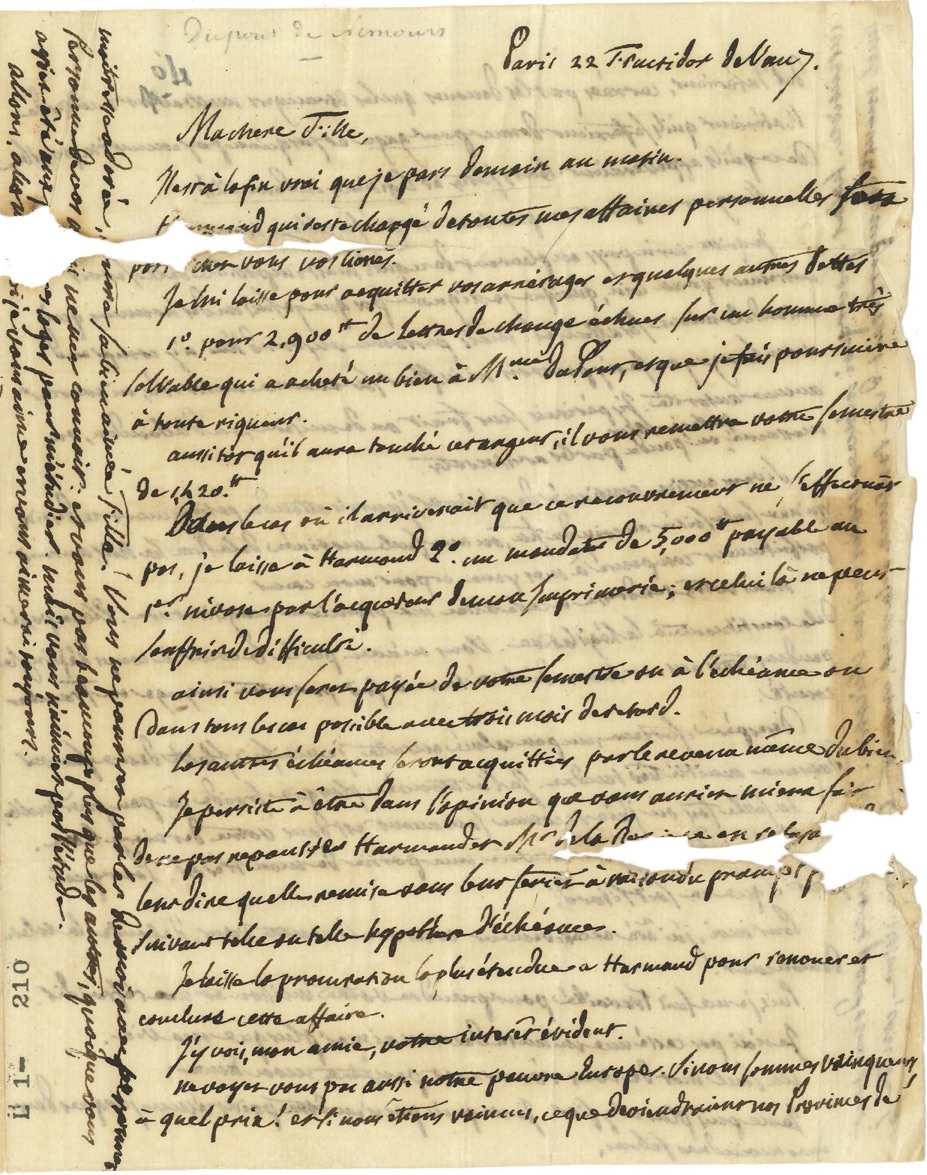 Dupont de Nemours
Paris 22 Fructidor de l'an 7.
Ma chere Fille,
Il est à la fin vrai que je pars demain au matin.
qui reste chargé de toutes mes affaires personnelles fera
chez vous vos lions.
Je lui laisse pour acquitter vos arrérages et quelques autres dettes
1°. pour 2,900 tt de Lettres de change échues sur un homme très
solvable qui a acheté un bien à Mme. du Pont, et que je fais poursuivre
à toute rigueur.
aussitôt qu'il aura touché cet argent, il vous remettra votre semestre
de 1,420. tt
Dans le cas où il arriverait que ce recouvrement ne s'effectuât
pas, je laisse à Harmand 2°. un mandat de 5,000 tt payable au
1er. nivose par l'acquéreur de mon Imprimerie; et celui là ne peut
souffrir de difficulté.
ainsi vous serez payée de votre semestre ou à l'échéance ou
dans tous les cas possible avec trois mois de retard.
les autres échéances seront acquittées par le revenu même du bien.
Je persiste à être dans l'opinion que vous auriez mieux fait
de ne pas repousser Harmand et Mr. de la
leur dire quelle remise vous leur feriez à raison du prompt
suivant telle ou telle hypothèse d'échéance.
Je laisse la procuration la plus étendue a Harmand pour renouer et
conclure cette affaire.
J'y vois, mon amie, votre intérêt évident.
ne voyez vous pas aussi notre pauvre Europe. Si nous sommes vainqueurs
à quel prix! et si nous étions vaincus, ce que deviendraient nos Provinces de
maitresse adorée, bien aimée fille! Vous ne pouvez parler de moi avec personne
Personne de vos ne me connait: et vous pas beaucoup plus que les autres, quoique vous
ayiez été aux loges pour m'étudier. mais vous n'aimez pas l'étude.
allons, allons je vous aime et vous aimerai toujours.
E 1- 210